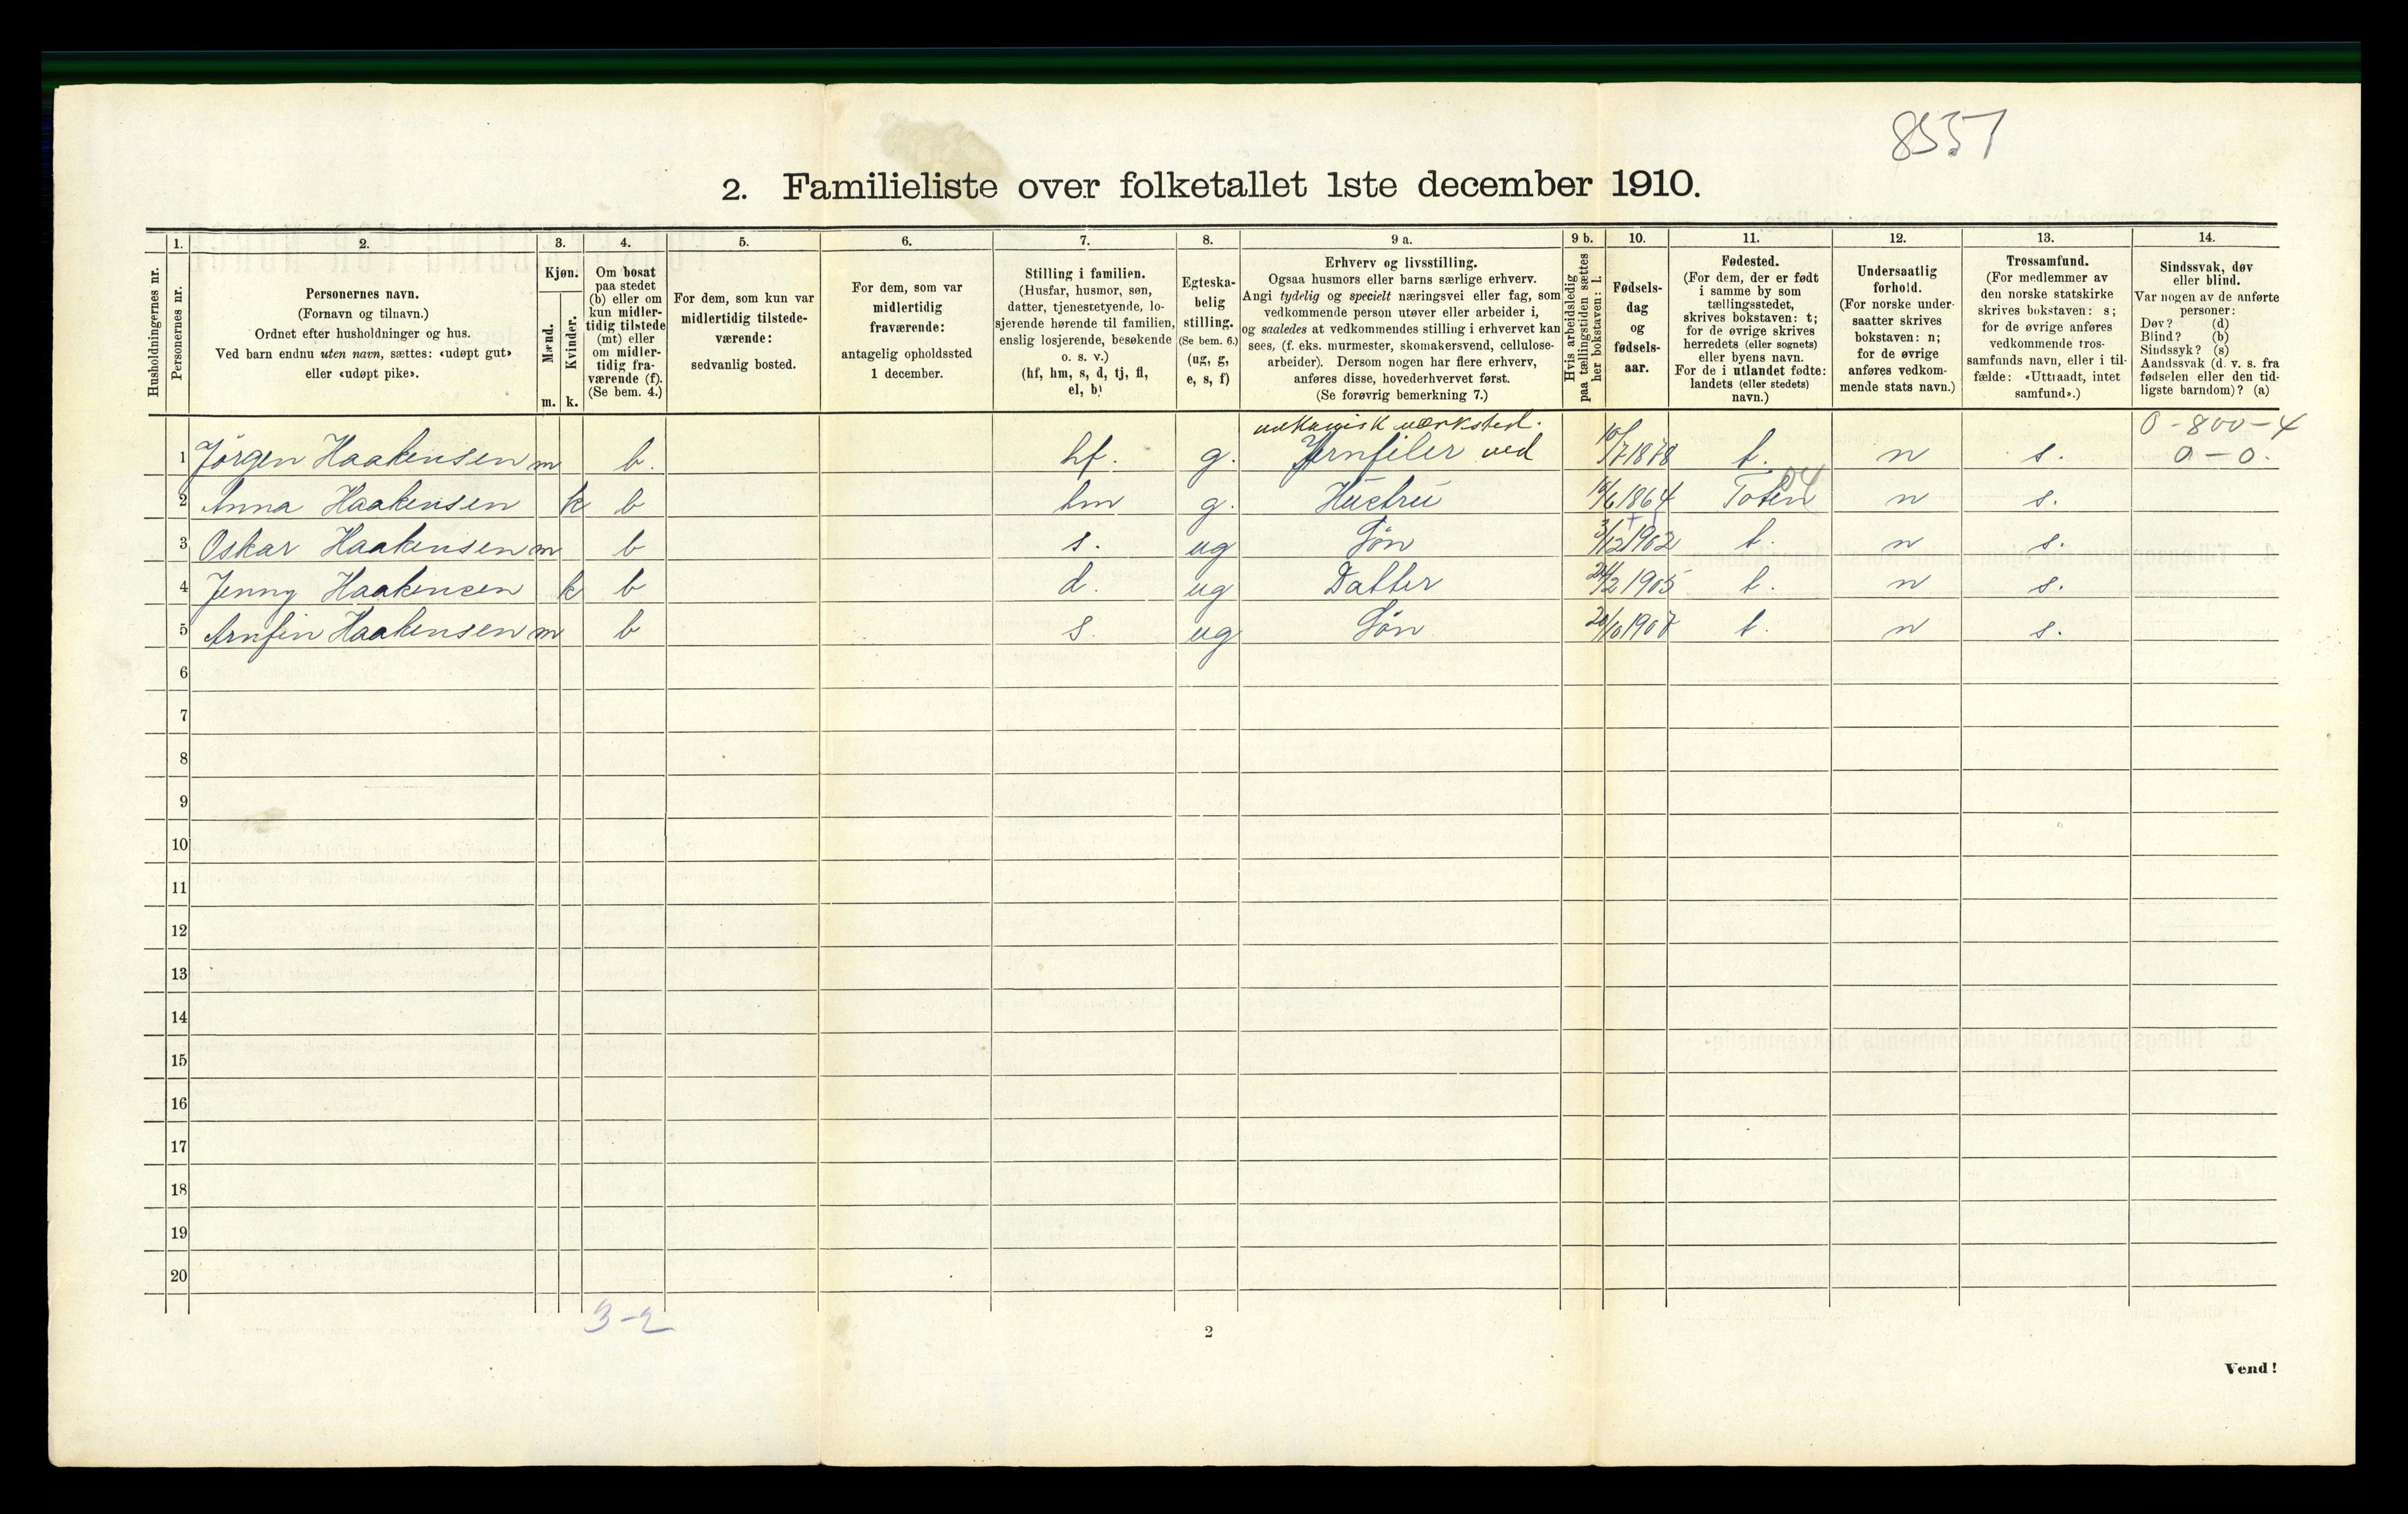 8557
2. Familieliste over folketallet 1ste december 1910.
1. 2. 3. 4. 5. 6. 7. 8. 9 a. 9 b. 10. 11. 12. 13. 14.
Husholdningernes nr.
Personernes nr.
Personernes navn.
(Fornavn og tilnavn.)
Ordnet efter husholdninger og hus.
Ved barn endnu uten navn, sættes: «udøpt gut»
eller «udøpt pike».
Kjøn.
Mænd.
Kvinder.
m. k.
Om bosat
paa stedet
(b) eller om
kun midler-
tidig tilstede
(mt) eller
om midler-
tidig fra-
værende (f).
(Se bem. 4.)
For dem, som kun var
midlertidig tilstede-
værende:
sedvanlig bosted.
For dem, som var
midlertidig
fraværende:
antagelig opholdssted
1 december.
Stilling i familien.
(Husfar, husmor, søn,
datter, tjenestetyende, lo-
sjerende hørende til familien,
enslig losjerende, besøkende
o. s. v.)
(hf, hm, s, d, tj, fl,
el, b)
Egteska-
belig
stilling.
(Se bem. 6.)
(ug, g,
e, s, f)
Erhverv og livsstilling.
Ogsaa husmors eller barns særlige erhverv.
Angi tydelig og specielt næringsvei eller fag, som
vedkommende person utøver eller arbeider i,
og saaledes at vedkommendes stilling i erhvervet kan
sees, (f. eks. murmester, skomakersvend, cellulose-
arbeider). Dersom nogen har flere erhverv,
anføres disse, hovederhvervet først.
(Se forøvrig bemerkning 7.)
Hvis arbeidsledig
paa tællingstiden sættes
her bokstaven: l.
Fødsels-
dag
og
fødsels-
aar.
Fødested.
(For dem, der er født
i samme by som
tællingsstedet,
skrives bokstaven: t;
for de øvrige skrives
herredets (eller sognets)
eller byens navn.
For de i utlandet fødte:
landets (eller stedets)
navn.)
Undersaatlig
forhold.
(For norske under-
saatter skrives
bokstaven: n;
for de øvrige
anføres vedkom-
mende stats navn.)
Trossamfund.
(For medlemmer av
den norske statskirke
skrives bokstaven: s;
for de øvrige anføres
vedkommende tros-
samfunds navn, eller i til-
fælde: «Uttraadt, intet
samfund».)
Sindssvak, døv
eller blind.
Var nogen av de anførte
personer:
Døv? (d)
Blind? (b)
Sindssyk? (s)
Aandssvak (d. v. s. fra
fødselen eller den tid-
ligste barndom)? (a)
mekanisk værksted. 0-800-4
1 Jörgen Haakensen m b. hf. g. Jernfiler ved 10/7 1878 t. n s. 0-0.
04
2 Anna Haakensen k b hm g. Hustru 10/6 1864 Toten n s.
3 Oskar Haakensen m b s. ug Søn 3/12 1902 t. n s.
4 Jenny Haakensen k b d. ug Datter 24/2 1905 t. n s.
5 Arnfin Haakensen m b s. ug Søn 20/10 1907 t. n s.
6
7
8
9
10
11
12
13
14
15
16
17
18
19
20
3-2
2
Vend!